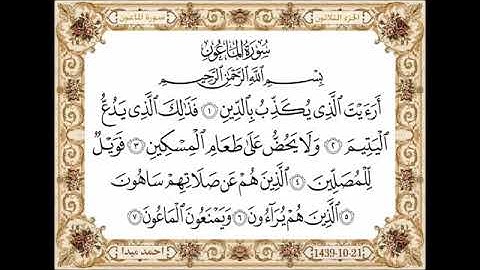 الجزء الثلاثون
سورة الماعون
سُورَةُ الْمَاعُونِ
بِسْمِ اللَّهِ الرَّحْمَٰنِ الرَّحِيمِ
أَرَءَيْتَ ٱلَّذِى يُكَذِّبُ بِٱلدِّينِ ١ فَذَٰلِكَ ٱلَّذِى يَدُعُّ
ٱلْيَتِيمَ ٢ وَلَا يَحُضُّ عَلَىٰ طَعَامِ ٱلْمِسْكِينِ ٣ فَوَيْلٌ
لِّلْمُصَلِّينَ ٤ ٱلَّذِينَ هُمْ عَن صَلَاتِهِمْ سَاهُونَ
٥ ٱلَّذِينَ هُمْ يُرَآءُونَ ٦ وَيَمْنَعُونَ ٱلْمَاعُونَ ٧
احمد ميدا
1439-10-21